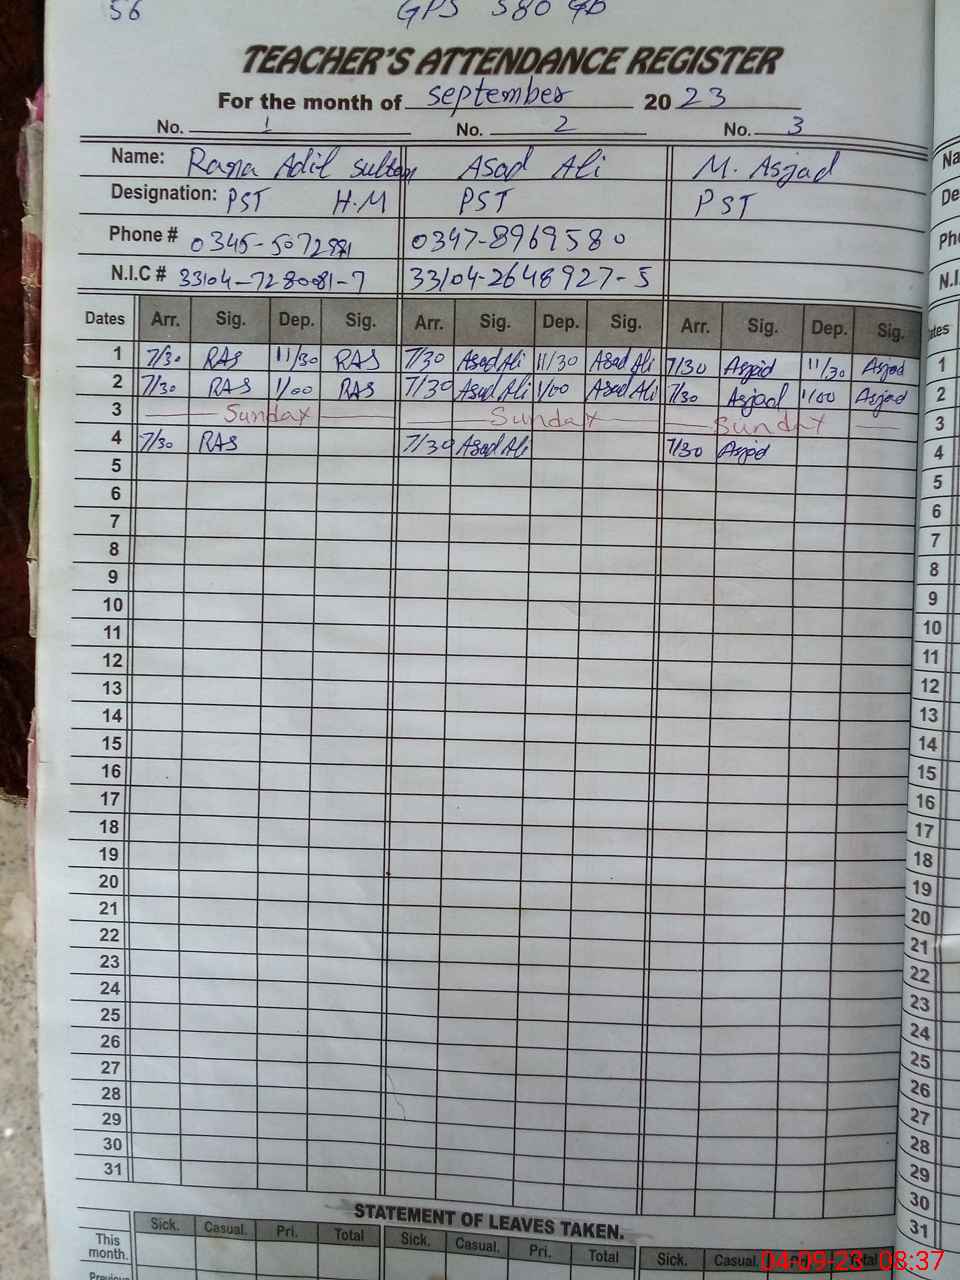 56 GPS 580 GB
TEACHER'S ATTENDANCE REGISTER
For the month of September 2023
No. 1 No. 2 No. 3
Name: Rana Adil Sultan Asad Ali M. Asjad
Designation: PST H.M PST PST
Phone # 0345-5072 0347-8969580
N.I.C # 33104-7280081-7 33104-2648927-5
Dates Arr. Sig. Dep. Sig. Arr. Sig. Dep. Sig. Arr. Sig. Dep. Sig.
1 7/30 RAS 11/30 RAS 7/30 Asad Ali 11/30 Asad Ali 7/30 Asjad 11/30 Asjad 1
2 7/30 RAS 1/00 RAS 7/30 Asad Ali 1/00 Asad Ali 7/30 Asjad 1/00 Asjad 2
3 Sunday Sunday Sunday 3
4 7/30 RAS 7/30 Asad Ali 7/30 Asjad 4
5 5
6 6
7 7
8 8
9 9
10 10
11 11
12 12
13 13
14 14
15 15
16 16
17 17
18 18
19 19
20 20
21 21
22 22
23 23
24 24
25 25
26 26
27 27
28 28
29 29
30 30
31 31
STATEMENT OF LEAVES TAKEN.
Sick. Casual. Pri. Total Sick. Casual. Pri. Total Sick. Casual. Total
This
month.
Previous
04-09-23 08:37